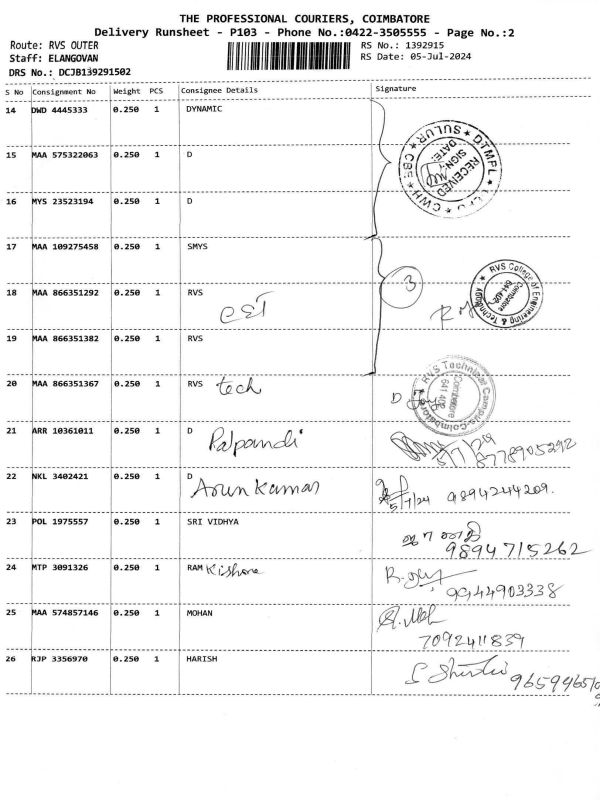 THE PROFESSIONAL COURIERS, COIMBATORE
Delivery Runsheet - P103 - Phone No.:0422-3505555 - Page No.:2
Route: RVS OUTER
Staff: ELANGOVAN
DRS No.: DCJB139291502
RS No.: 1392915
RS Date: 05-Jul-2024
S No Consignment No Weight PCS Consignee Details Signature
14 DWD 4445333 0.250 1 DYNAMIC
15 MAA 575322063 0.250 1 D
SULUR ★ DTMPL ★ CWH ★ CBE
RECEIVED
SIGN:
DATE:
16 MYS 23523194 0.250 1 D
17 MAA 109275458 0.250 1 SMYS
3
18 MAA 866351292 0.250 1 RVS
RVS College of Engineering & Technology
Coimbatore
641 402
19 MAA 866351382 0.250 1 RVS
20 MAA 866351367 0.250 1 RVS tech
RVS Technical Campus-Coimbatore
Coimbatore
641 402
21 ARR 10361011 0.250 1 D
Palpandi
5/7/24
8778905292
22 NKL 3402421 0.250 1 D
Arun Kumar
5/7/24 9894244209.
23 POL 1975557 0.250 1 SRI VIDHYA
9894715262
24 MTP 3091326 0.250 1 RAM Kishore
9944903338
25 MAA 574857146 0.250 1 MOHAN
7092411839
26 RJP 3356970 0.250 1 HARISH